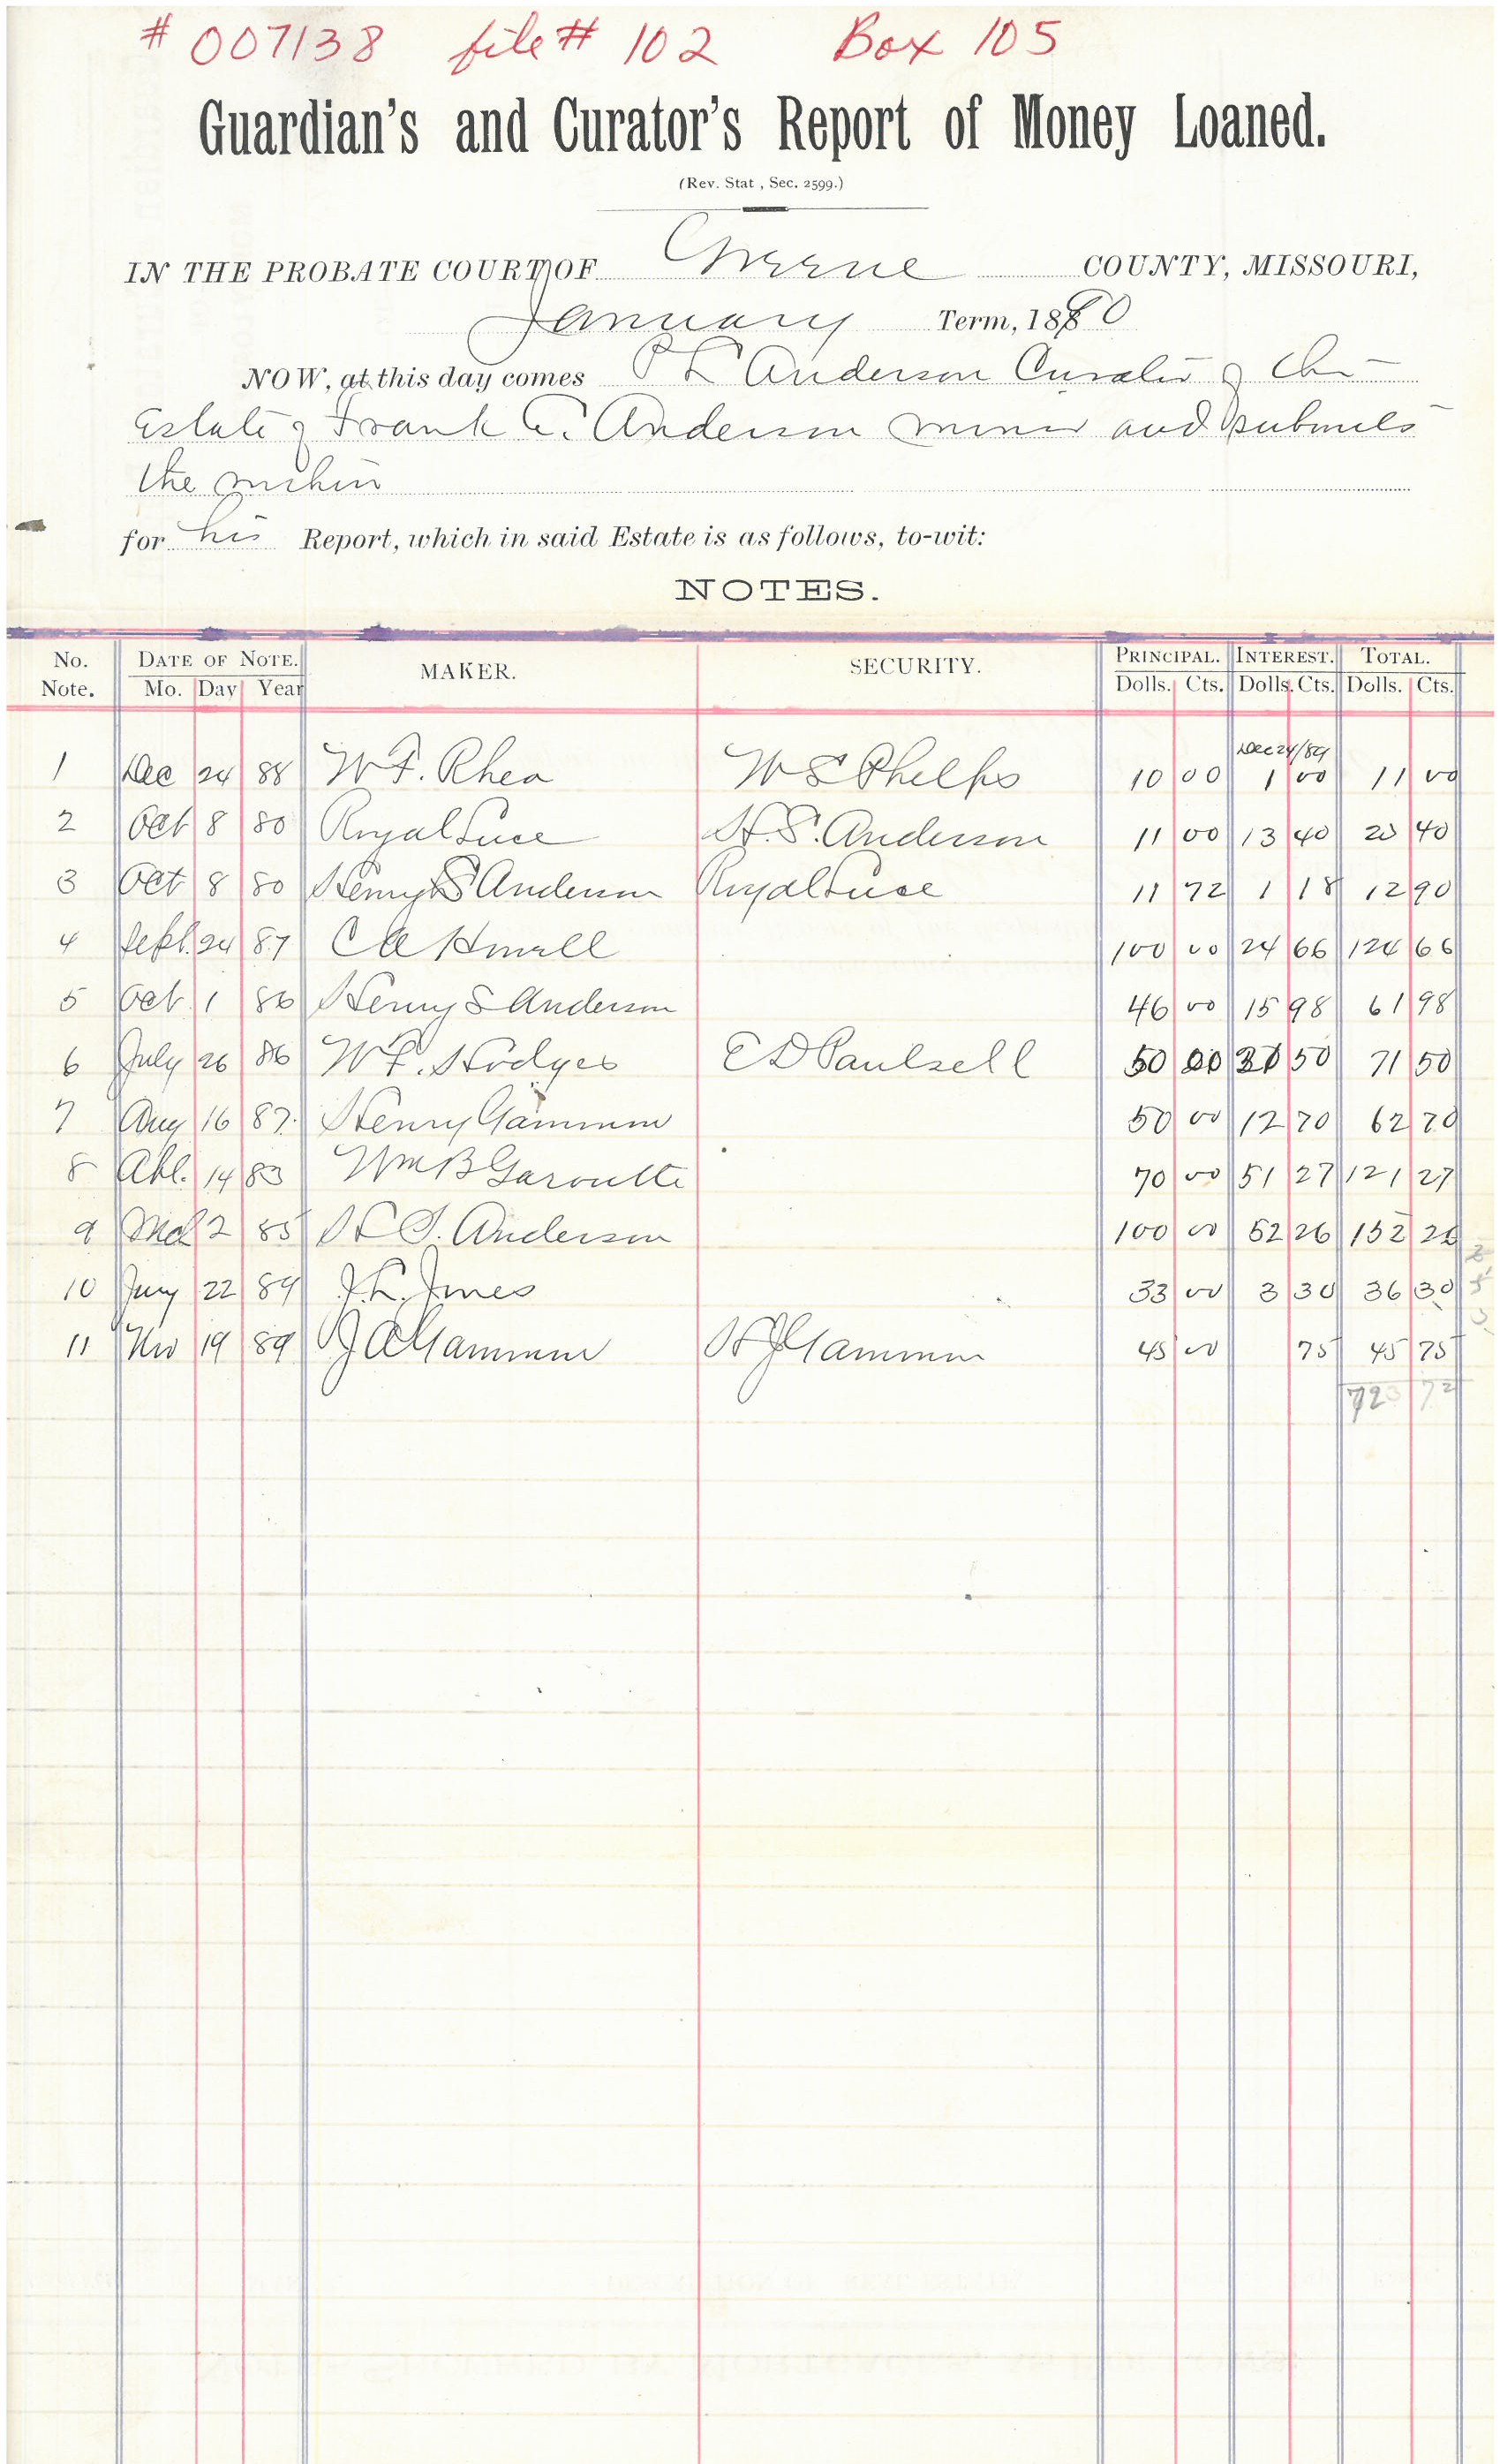 # 007138 file # 102 Box 105
Guardian's and Curator's Report of Money Loaned.
(Rev. Stat , Sec. 2599.)
IN THE PROBATE COURT OF Greene COUNTY, MISSOURI,
January Term, 1890
NOW, at this day comes P L Anderson Curator of the
Estate of Frank C. Anderson minor and submits
the within
for his Report, which in said Estate is as follows, to-wit:
NOTES.
No. Note. DATE OF NOTE. Mo. Day Year MAKER. SECURITY. PRINCIPAL. Dolls. Cts. INTEREST. Dolls. Cts. TOTAL. Dolls. Cts.
Dec 24/89
1 Dec 24 88 W F. Rhea W E Phelps 10 00 1 00 11 00
2 Oct 8 80 Royal Luce H. S. Anderson 11 00 13 40 20 40
3 Oct 8 80 Henry S Anderson Royal Luce 11 72 1 18 12 90
4 Sept. 24 87 C A 100 00 24 66 124 66
5 Oct 1 86 Henry S Anderson 46 00 15 98 61 98
6 July 26 86 W F. Hodges E D Paulsell 50 00 21 50 71 50
7 Aug 16 87. Henry Gammon 50 00 12 70 62 70
8 14 83 Wm B Garoutte 70 00 51 27 121 27
9 2 85 H S. Anderson 100 00 52 26 152 26
10 Jany 22 89 J. L. Jones 33 00 3 30 36 30
11 Nov 19 89 J A Gammon H J Gammon 45 00 75 45 75
720 72